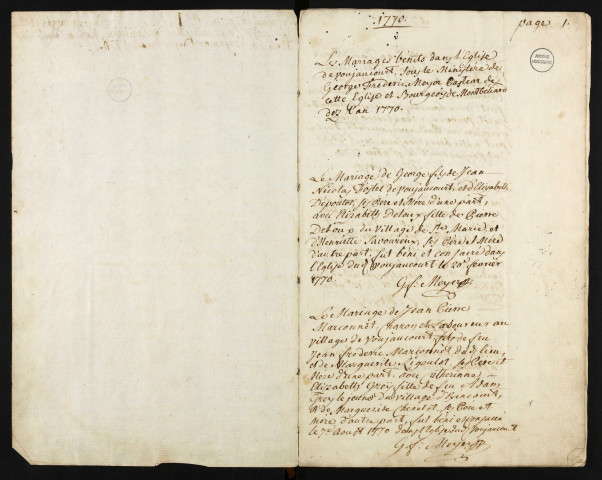 1770.
page 1.
Les Mariages benits dans l'Eglise
de voujaucourt, sous le Ministere de
George Frederic Meyer Pasteur de
cette Eglise et Bourgeois de Montbeliard
dez l'an 1770.
Le Mariage de George fils de Jean
Nicolas Fostel de voujaucourt, et d'Elizabeth
ses Pere et Mere d'une part,
avec Elizabeth Deloux fille de Pierre
Deloux du village de Ste Marie, et
d'Henriette Savoureux, ses Père et Mère
d'autre part, fut béni et consacré dans
l'Eglise dud. Voujaucourt le 20e fevrier
1770.
Gf: Meyer
Le Mariage de Jean Pierre
Marconnet, charon et Laboureur au
village de Voujaucourt fils de feu
Jean frederic Marconnet dud. lieu,
et de Marguerite Ligoulot, ses Pere et
Mere d'une part, avec Catherinne
Elizabeth fille de feu Adam
le jeune du village d'
de Marguerite ses Pere et
Mere d'autre part, fut béni et consacré
le 7e Aout 1770 dans l'Eglise dud. Voujaucourt
Gf: Meyer